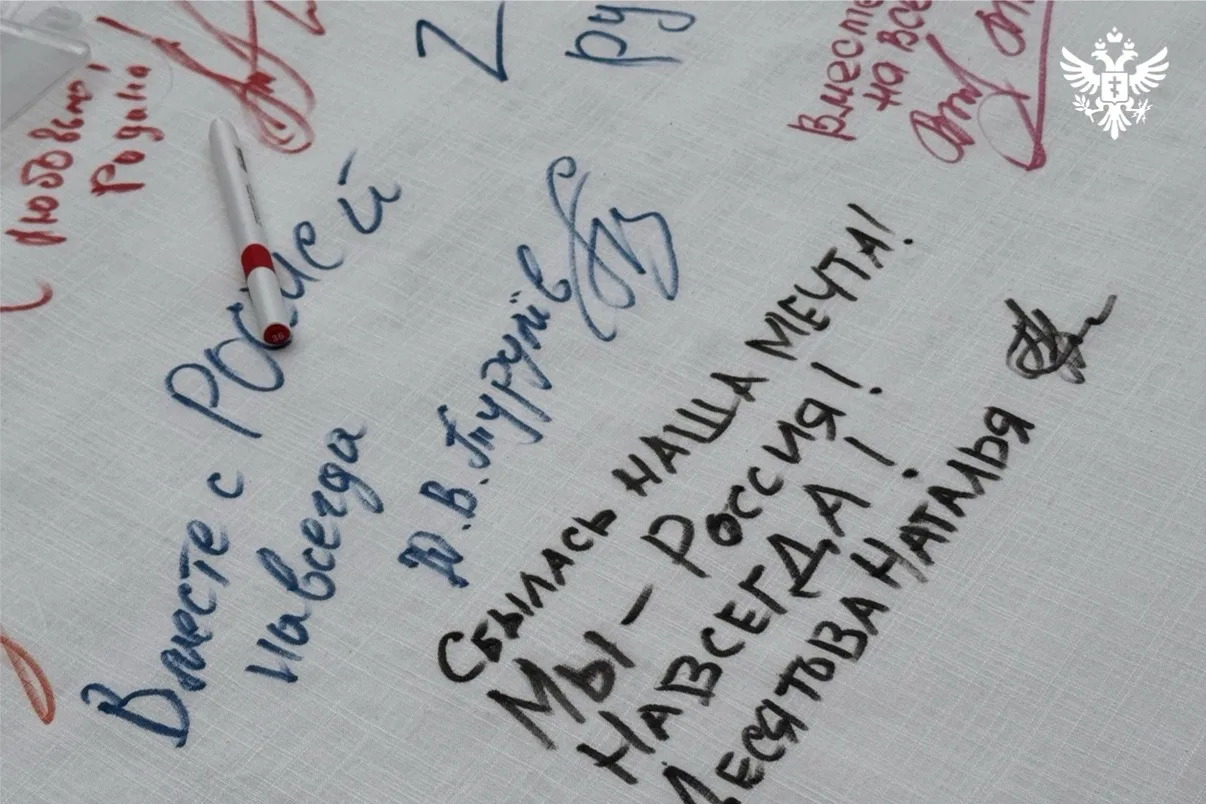 Любовью
Родина
Z
ру
Вместе
на все
Вместе с Россией
навсегда
Ю.В.
Сбылась наша мечта!
Мы – Россия!
Навсегда!
Десятова Наталья
36